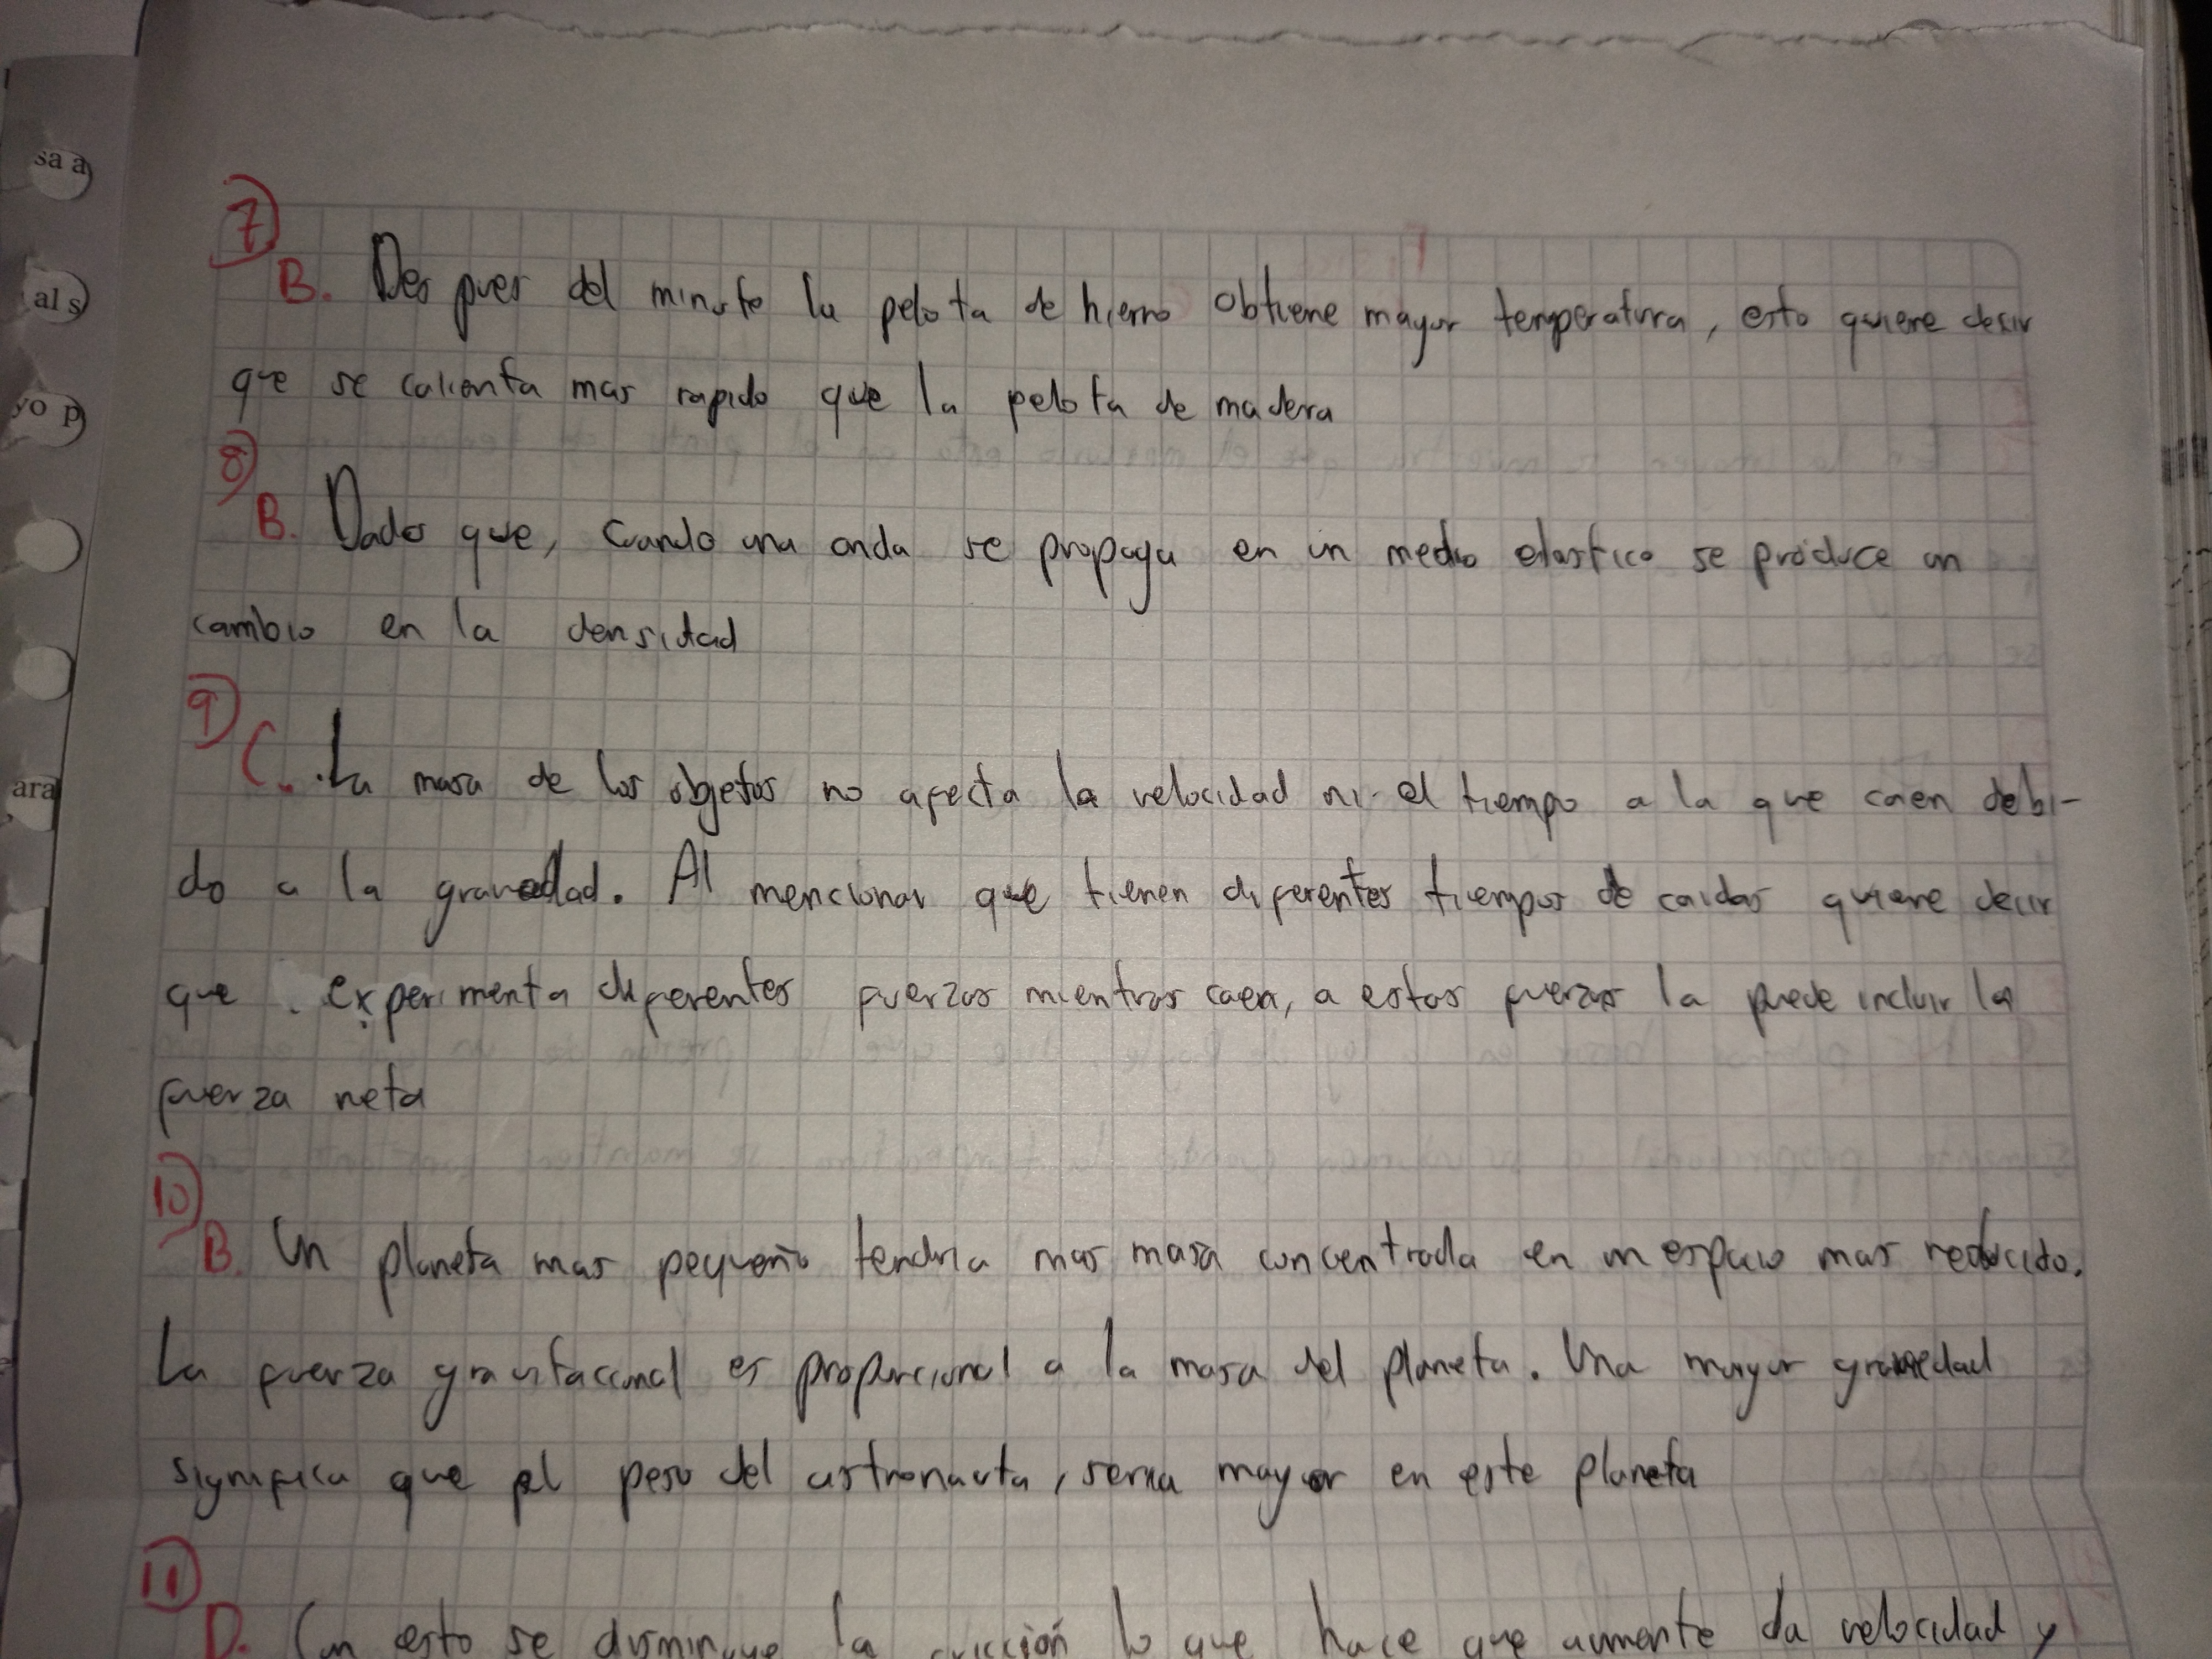 sa a
al s
yo p
ara
7)
B. Des pues del minuto la pelota de hierro obtiene mayor temperatura, esto quiere decir
que se calienta mas rapido que la pelota de madera
8)
B. Dado que, cuando una onda se propaga en un medio elastico se produce un
cambio en la densidad
9)
C. La masa de los objetos no afecta la velocidad ni el tiempo a la que caen debi-
do a la gravedad. Al mencionar que tienen diferentes tiempos de caidas quiere decir
que experimenta diferentes fuerzas mientras caen, a estas fuerzas la puede incluir la
fuerza neta
10)
B. Un planeta mas pequeño tendria mas masa concentrada en un espacio mas reducido.
La fuerza gravitacional es proporcional a la masa del planeta. Una mayor gravedad
significa que el peso del astronauta, seria mayor en este planeta
11)
D. Con esto se disminuye la fricción lo que hace que aumente la velocidad y